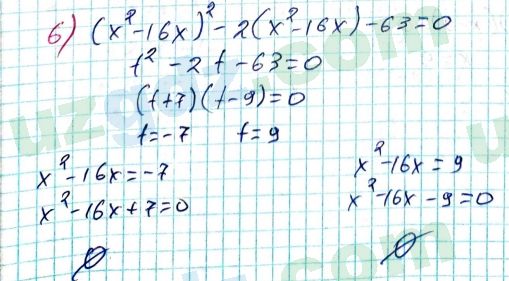 6) (x²-16x)²-2(x²-16x)-63=0
t²-2t-63=0
(t+7)(t-9)=0
t=-7 t=9
x²-16x=-7 x²-16x=9
x²-16x+7=0 x²-16x-9=0
∅ ∅